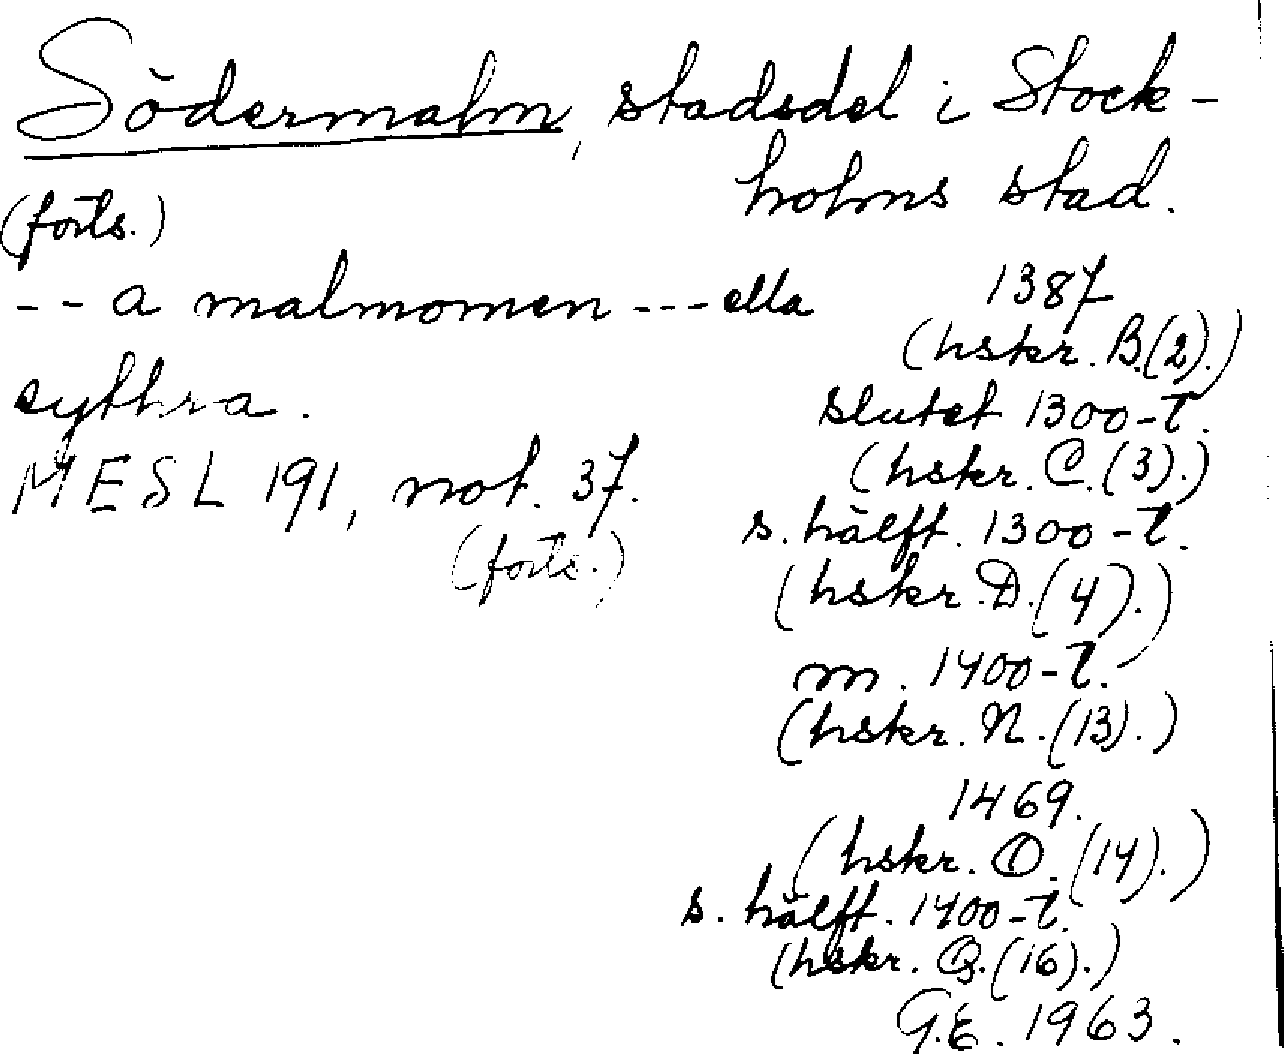 Södermalm, stadsdel i Stock-
holms stad.
(forts.)
-- a malmomen --- ella
sythra.
MESL 191, not. 37.
(forts.)
1387
(hskr. B.(2).)
slutet 1300-t.
(hskr. C.(3).)
s. hälft. 1300-t.
(hskr. D.(4).)
m. 1400-t.
(hskr. N.(13).)
1469.
(hskr. O.(14).)
s. hälft. 1400-t.
(hskr. Q.(16).)
G.E. 1963.